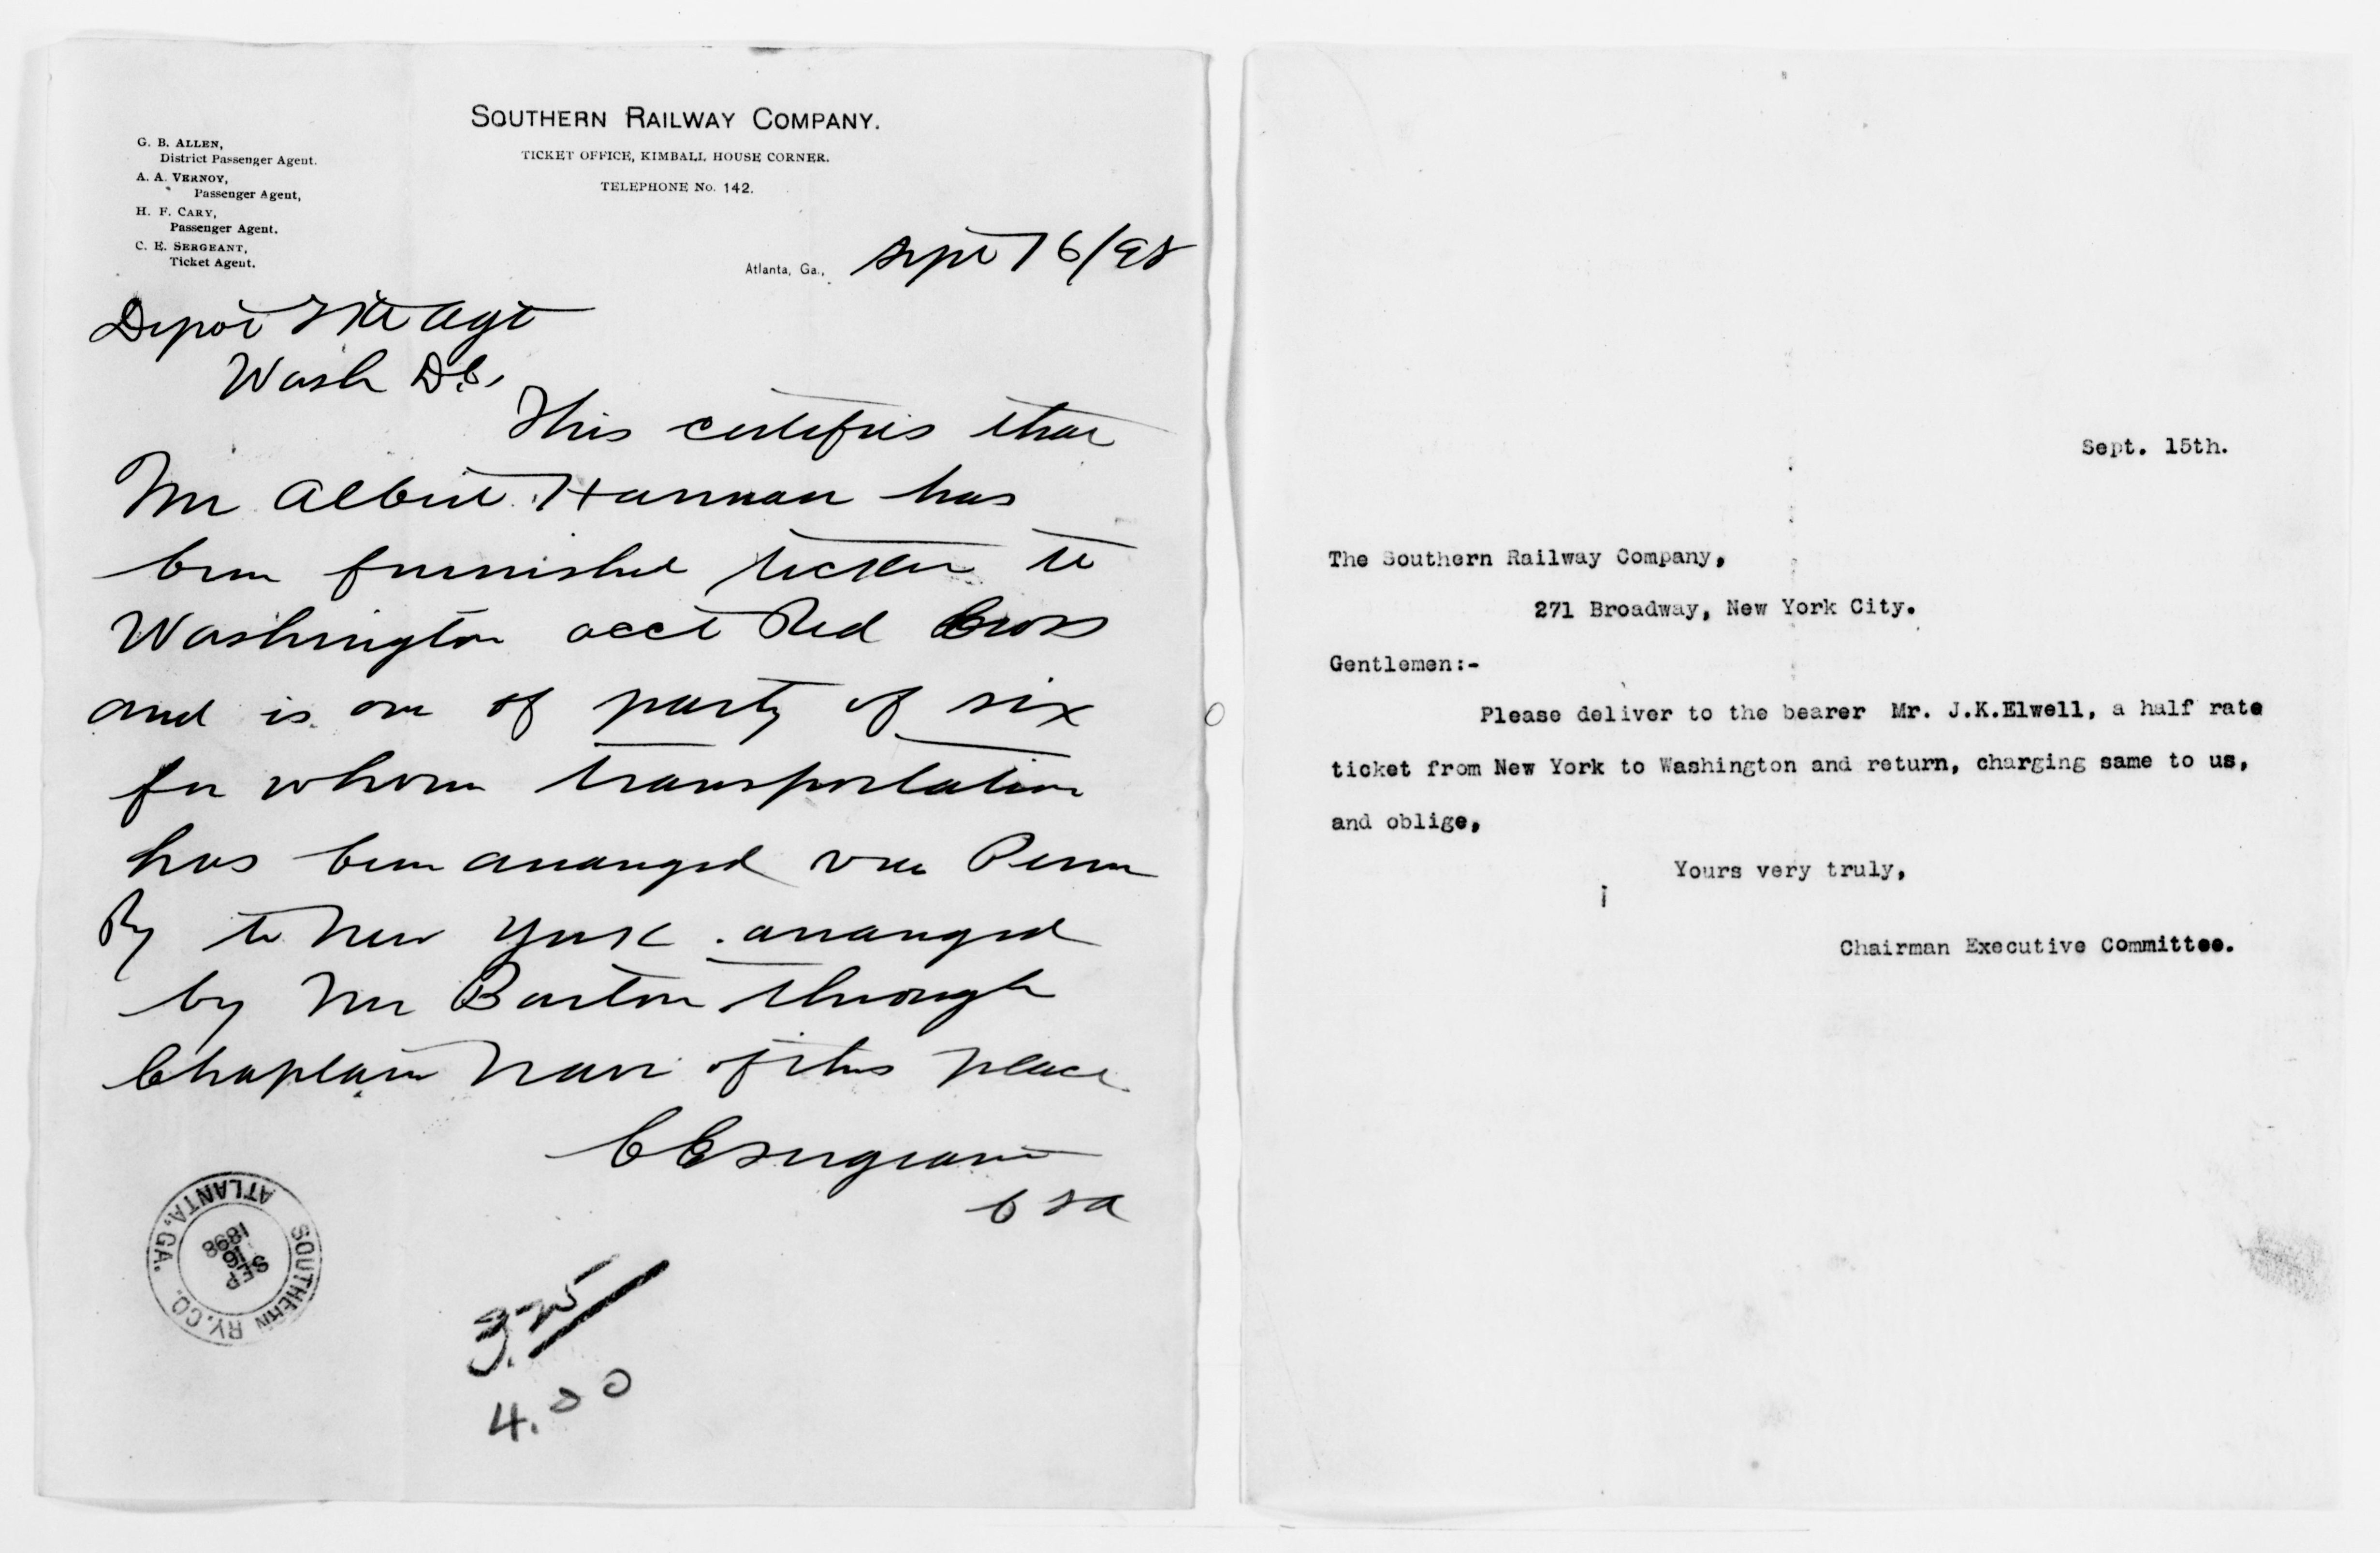 SOUTHERN RAILWAY COMPANY.
TICKET OFFICE, KIMBALL HOUSE CORNER.
TELEPHONE No. 142.
G. B. ALLEN,
District Passenger Agent.
A. A. VERNOY,
Passenger Agent,
H. F. CARY,
Passenger Agent.
C. E. SERGEANT,
Ticket Agent.
Atlanta, Ga., Sept 16/98
Depot Tkt Agt
Wash DC,
This certifies that
Mr Albert Hannan has
been furnished ticket to
Washington acct Red Cross
and is one of party of six
for whom transportation
has been arranged via Penn
Ry to New York. arranged
by Mr Barton through
Chaplain of this place
C E Sergeant
ATLANTA, GA.
SOUTHERN RY. CO.
SEP
16
1898
4.00
Sept. 15th.
The Southern Railway Company,
271 Broadway, New York City.
Gentlemen:-
Please deliver to the bearer Mr. J.K.Elwell, a half rate
ticket from New York to Washington and return, charging same to us,
and oblige,
Yours very truly,
Chairman Executive Committee.